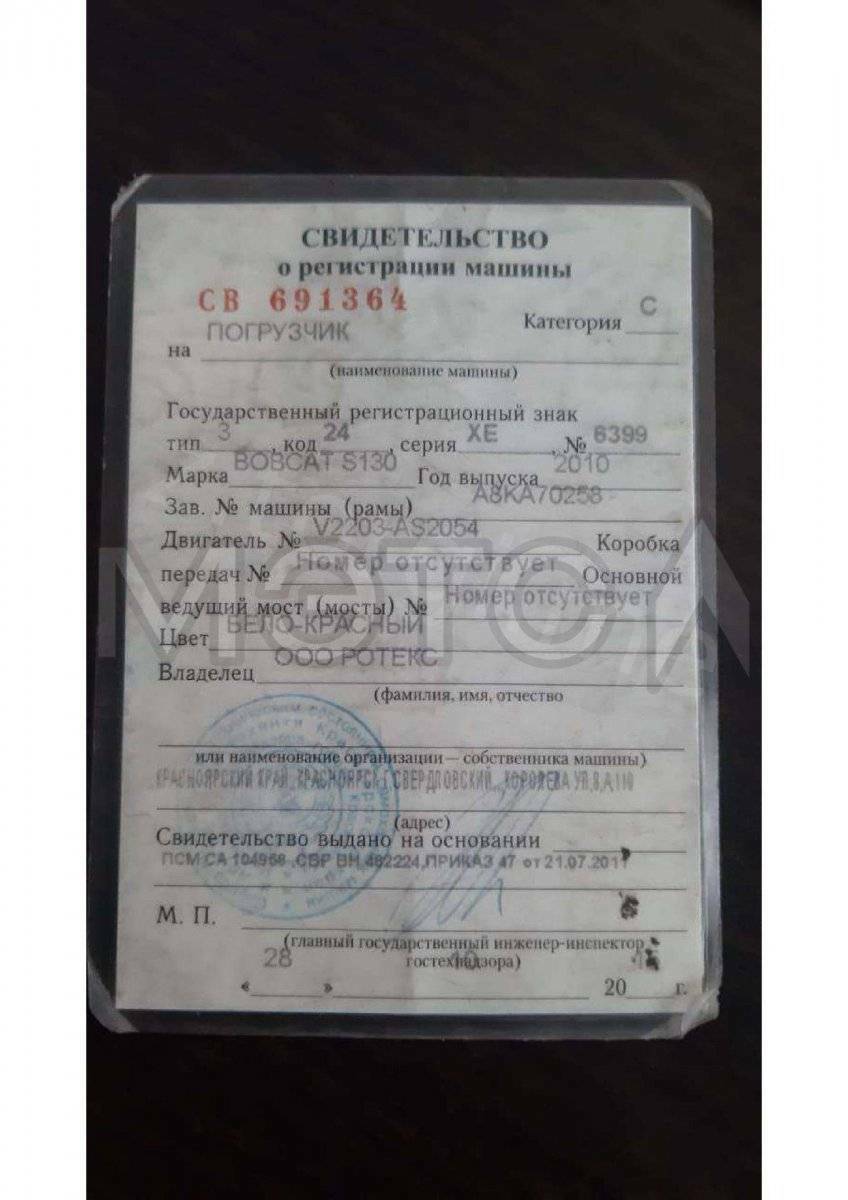 СВИДЕТЕЛЬСТВО
о регистрации машины
СВ 691364
Категория С
на ПОГРУЗЧИК
(наименование машины)
Государственный регистрационный знак
тип 3, код 24, серия ХЕ, № 6399
Марка BOBCAT S130 Год выпуска 2010
Зав. № машины (рамы) A8KA70258
Двигатель № V2203-AS2054 Коробка
передач № Номер отсутствует Основной
ведущий мост (мосты) № Номер отсутствует
Цвет БЕЛО-КРАСНЫЙ
Владелец ООО РОТЕКС
(фамилия, имя, отчество
или наименование организации — собственника машины)
КРАСНОЯРСКИЙ КРАЙ, КРАСНОЯРСК Г, СВЕРДЛОВСКИЙ, КОРОЛЕВА УЛ,8,А,110
(адрес)
Свидетельство выдано на основании
ПСМ СА 104958 ,СВР ВН 482224,ПРИКАЗ 47 от 21.07.2011
М. П.
(главный государственный инженер-инспектор
гостехнадзора)
« 28 » 10 20 г.
МЭТСЛ